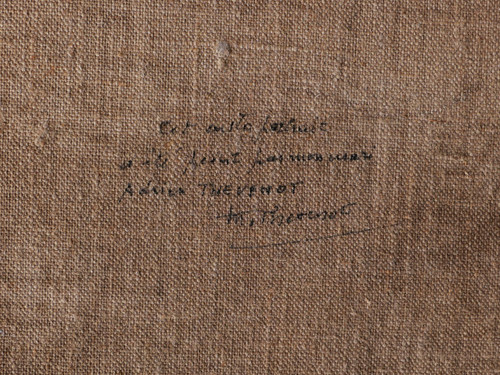 Cet auto portrait
a été peint par mon mari
Adrien THEVENOT
Thevenot